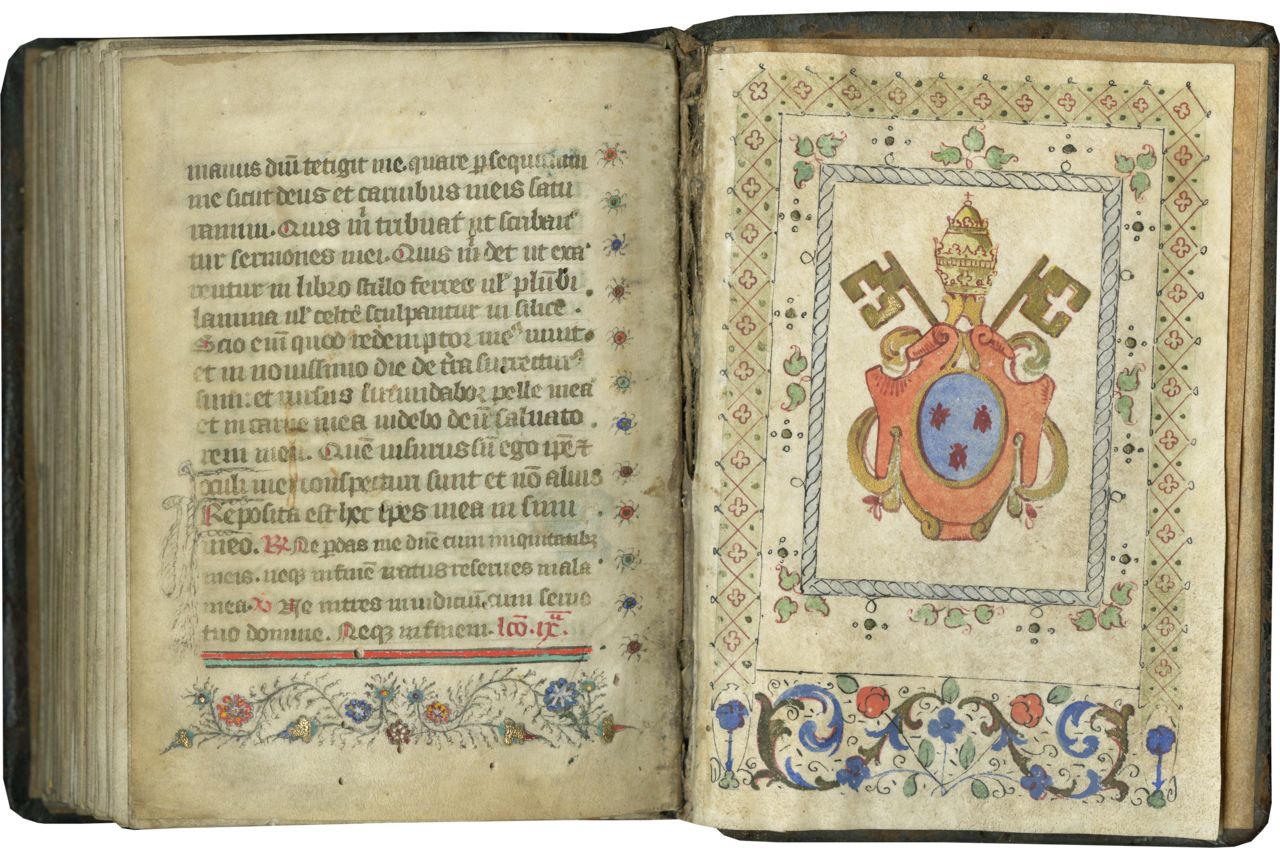 manus dñi tetigit me. quare ꝑsequimini
me sicut deus et carnibus meis satu
ramini. Quis m̃ tribuat ut scriban
tur sermones mei. Quis m̃ det ut exa
rentur in libro stillo ferreo ul' plũbi
lamina ul' celtẽ sculpantur in silice.
Scio eni̅ quod redemptor meꝰ uiuit.
et in nouissimo die de t̃ra surrecturꝰ
sum. et rursus circundabor pelle mea
et in carne mea uidebo deũ saluato
rem meũ. Quẽ uisurus sũ ego ip̃e et
oculi mei conspecturi sunt et nõ alius
Reposita est hec spes mea in sinu
meo. ℟ Ne ꝑdas me dñe cum iniquitatibꝫ
meis. neqꝫ in finẽ iratus reserues mala
mea. ℣ Ne intres in iudiciũ cum seruo
tuo domine. Neqꝫ in finem. lcõ. ixᵃ.